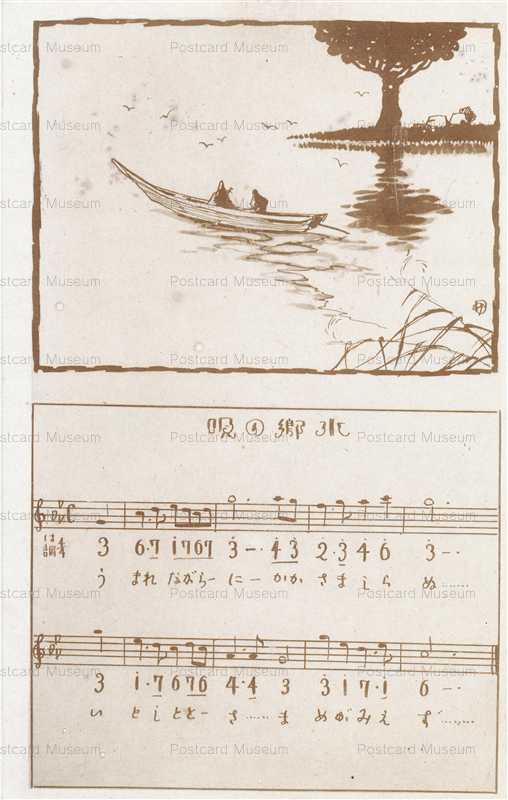 Postcard Museum
水郷の唄
は調 4/4 3 6·7 1767 3 – · 4 3 2·3 4 6 3 – ·
う まれ ながらー にー かか さま しら ぬ……
3 1·7 676 4·4 3 3 1 7·1 6 – ·
い としととー さ…… ま めが みえ ず……